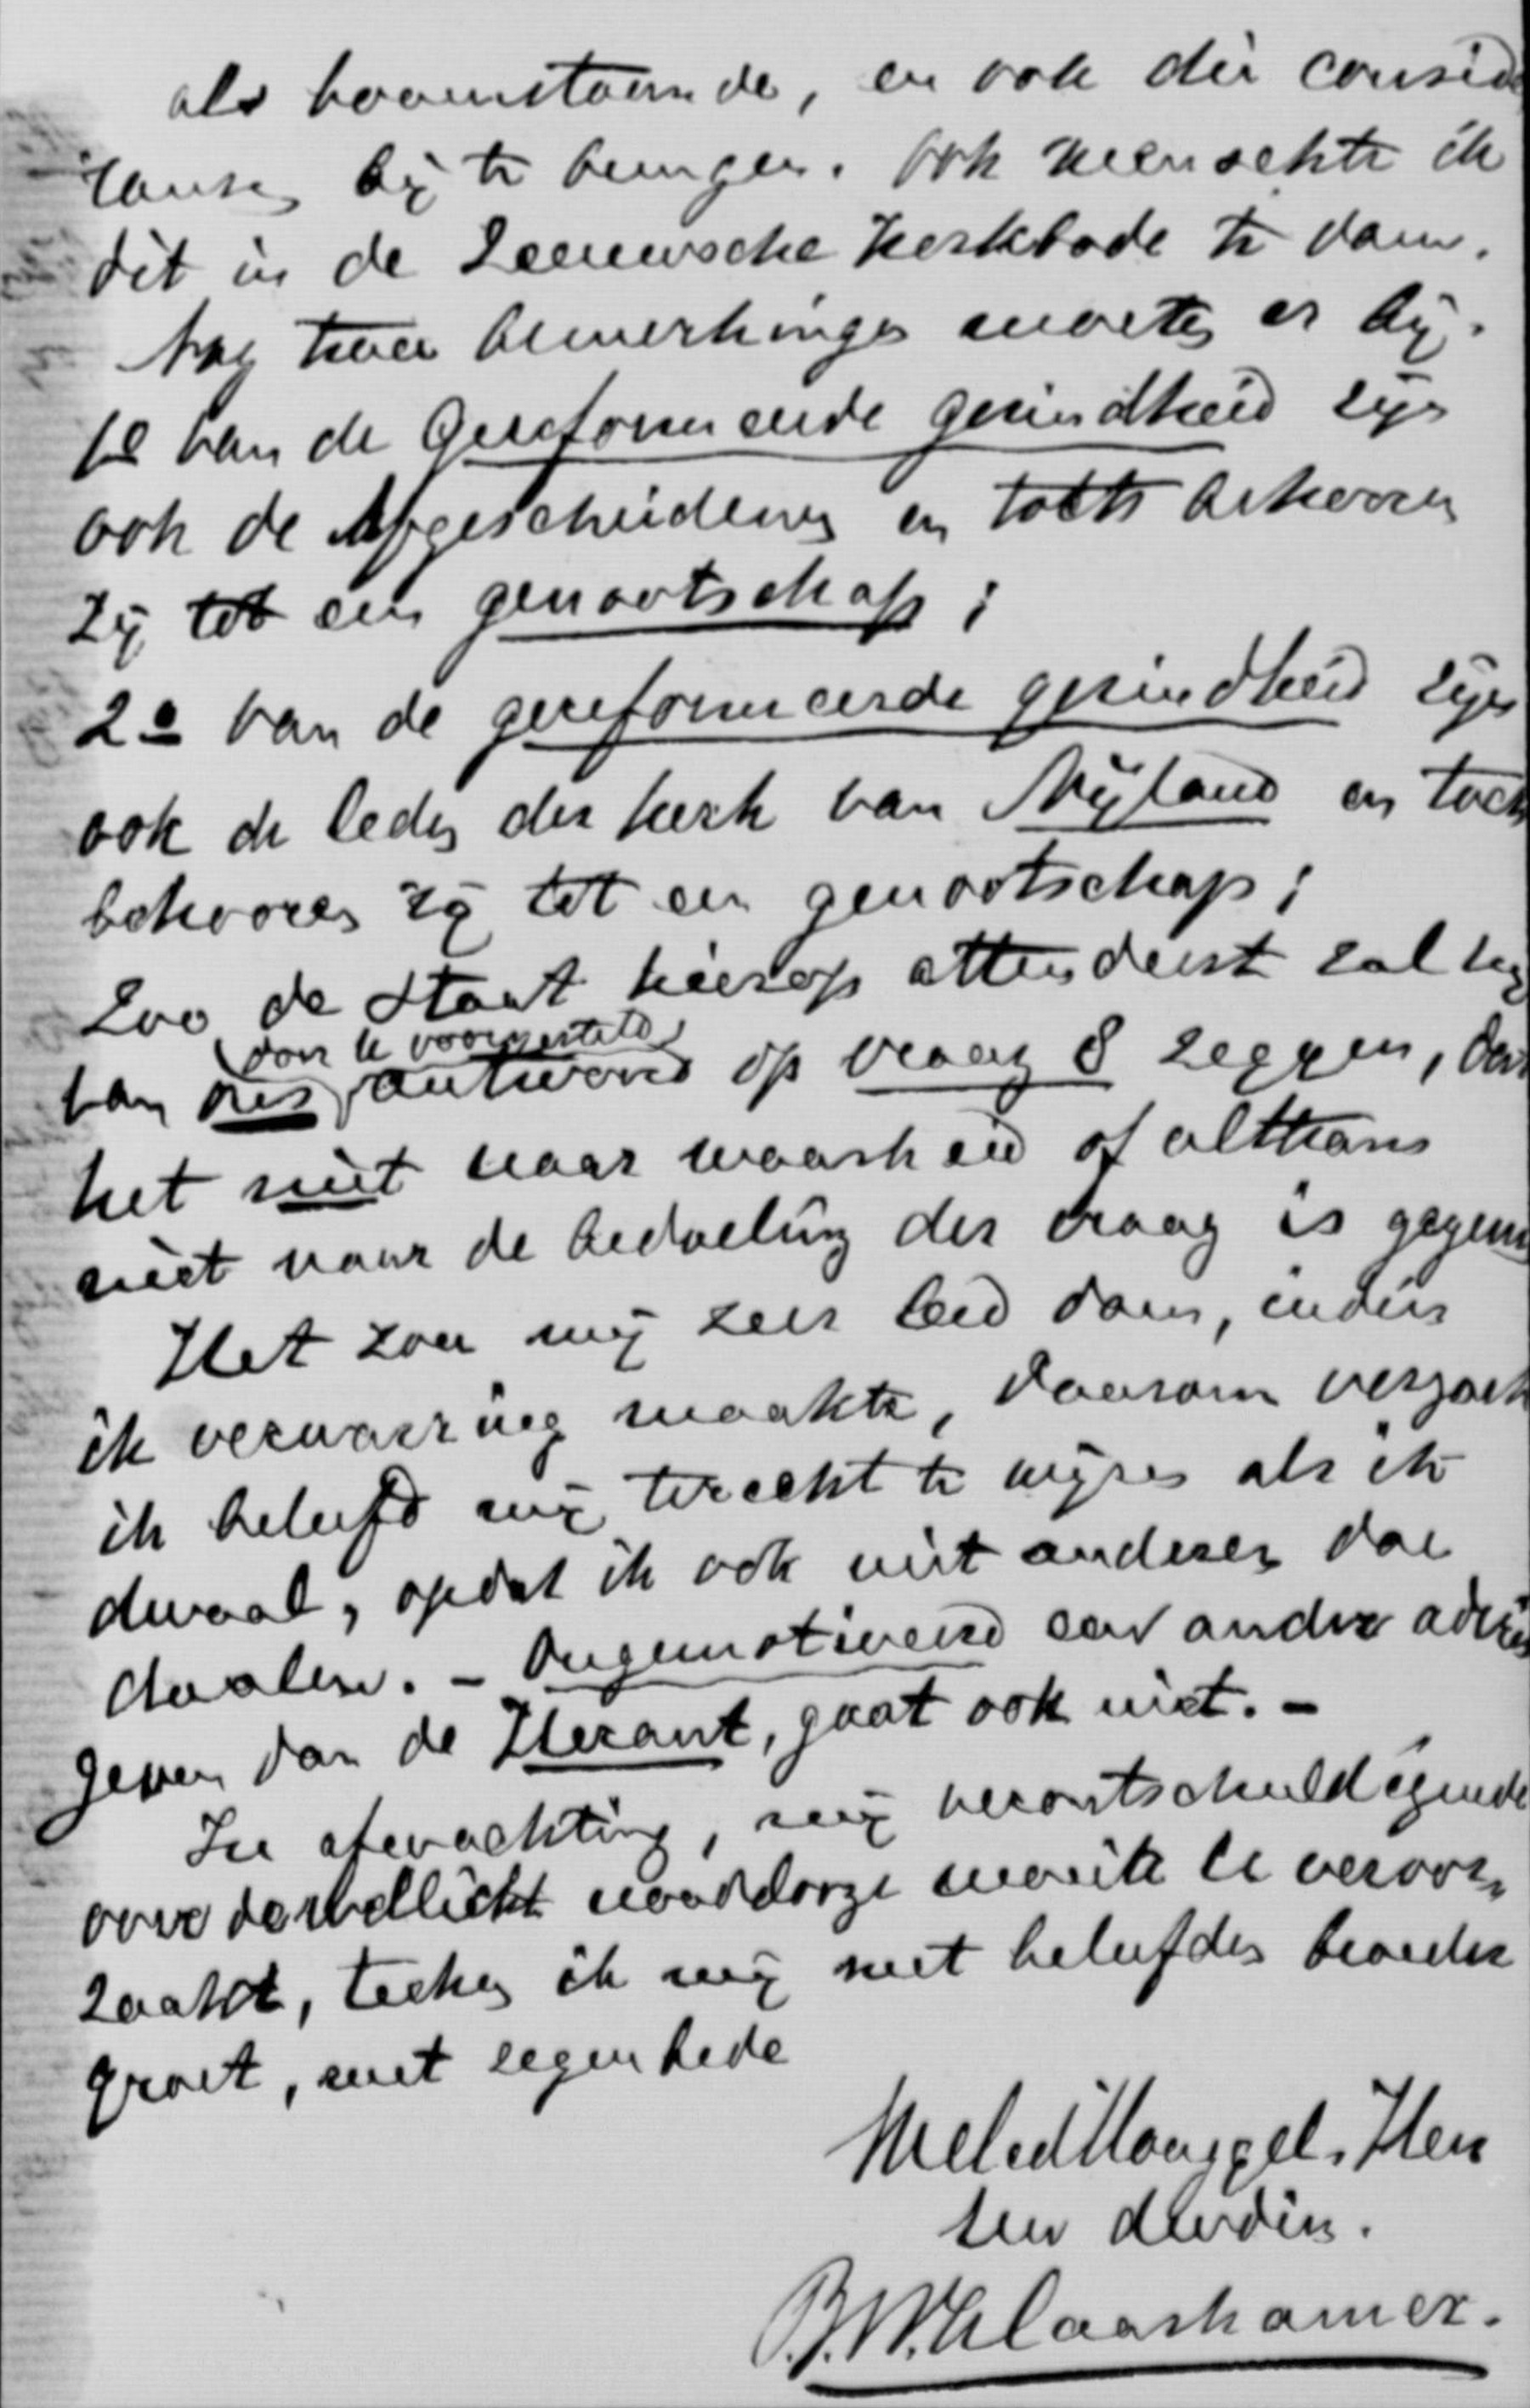 als bovenstaande, en ook die consid
tansen bij te brengen. Ook wenschte ik
dit in de Zeeuwsche Kerkbode te doen.
Nog twee bemerkingen moeten er bij.
1e van de Gereformeerde gezindheid zijn
ook de Afgescheidenen en toch behooren
zij tot een genootschap;
2e van de gereformeerde gezindheid zijn
ook de leden der kerk van Nijland en toch
behooren zij tot een genootschap;
Zoo de Staat hierop attendeert zal hij
(door U voorgesteld)
van ons antwoord op vraag 8 zeggen, dat
het niet naar waarheid of althans
niet naar de bedoeling der vraag is gegeven
Het zou mij zeer leid doen, indien
ik verwarring maakte, daarom verzoek
ik beleefd mij terecht te wijzen als ik
dwaal, opdat ik ook niet anderen doe
dwalen. - Ongemotiveerd een ander advies
geven dan de Heraut, gaat ook niet. -
In afwachting, mij verontschuldigende
over de wellicht noodelooze moeite U veroor-
zaakt, teeken ik mij met beleefden broeder
groet, met zegenbede
WelEdHooggel. Heer
Uw dw din.
B.W. Klaarhamer.